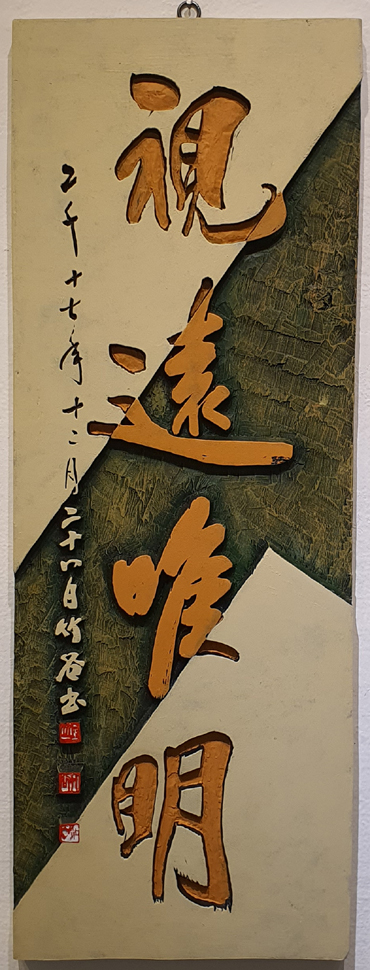 視遠唯明
二千十七年十二月二十八日竹谷書